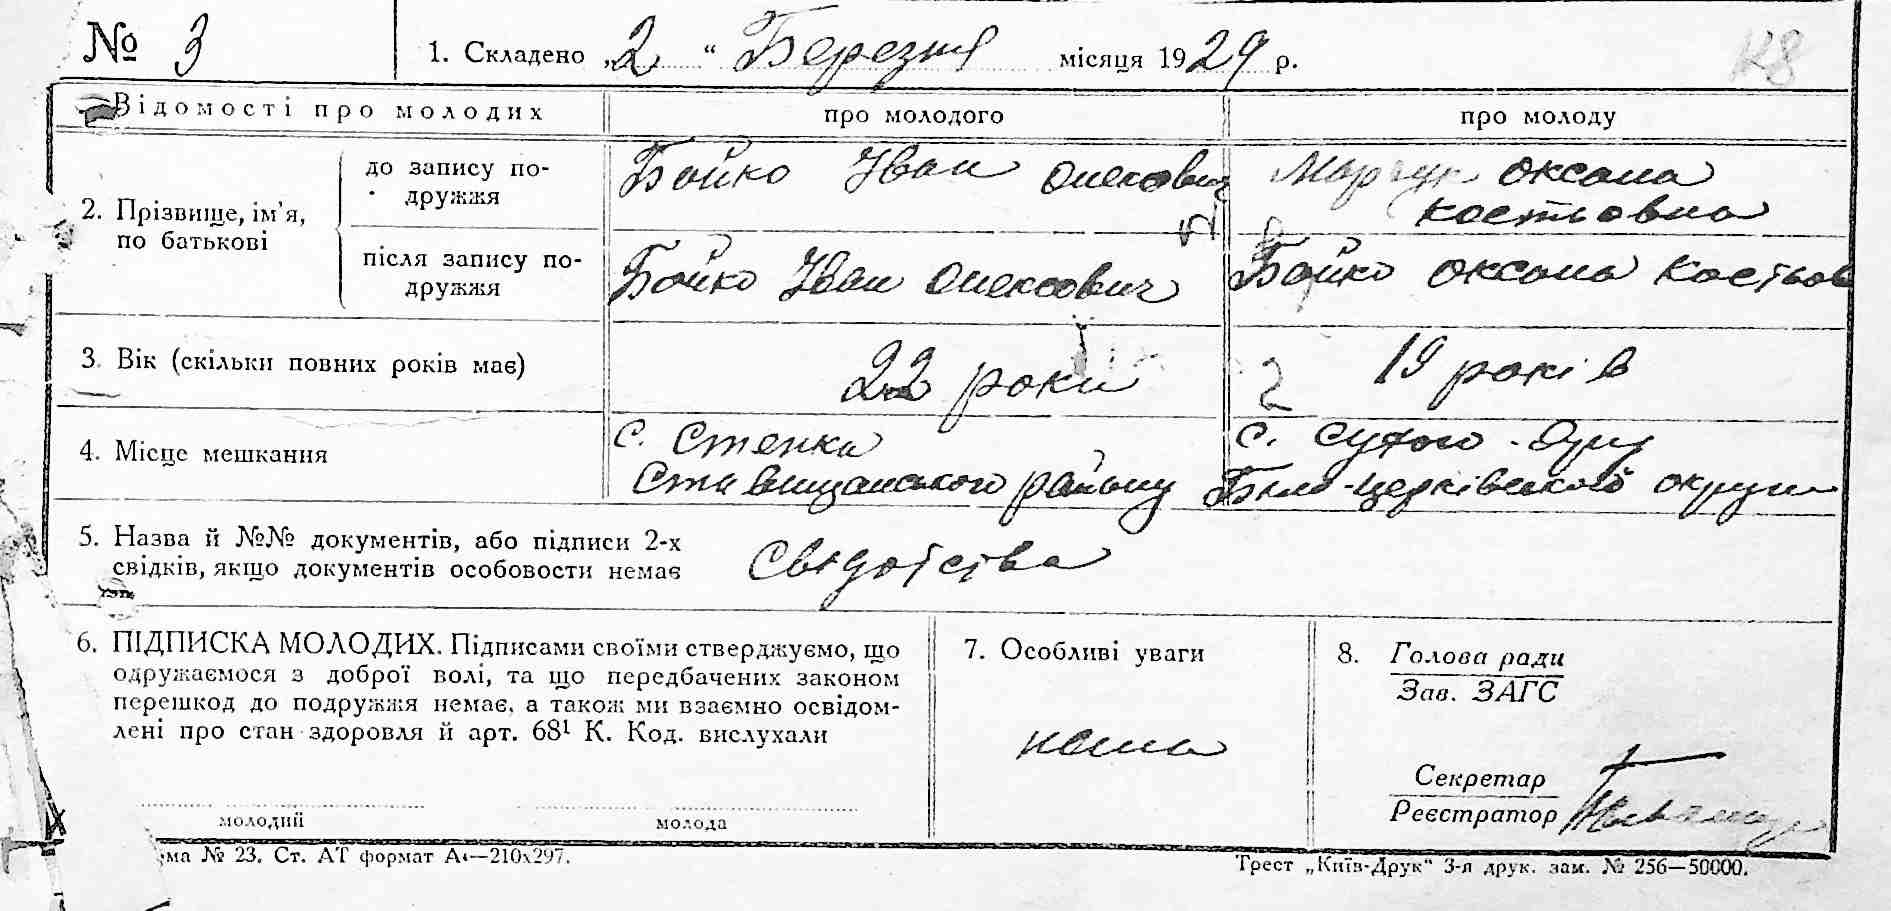 № 3
1. Складено „2" Березня місяця 1929 р.
Відомості про молодих
про молодого
про молоду
2. Прізвище, ім'я, по батькові
до запису подружжя
Бойко Іван Олексович
Марчук Оксана
Костьовна
після запису подружжя
Бойко Іван Олексович
Бойко Оксана Костьов
3. Вік (скільки повних років має)
22 роки
19 років
4. Місце мешкання
с. Степка
Ставищанського району
с. Сухого-Яру
Біло-Церківської округи
5. Назва й №№ документів, або підписи 2-х
свідків, якщо документів особовости немає
Свідотства
6. ПІДПИСКА МОЛОДИХ. Підписами своїми стверджуємо, що
одружаємося з доброї волі, та що передбачених законом
перешкод до подружжя немає, а також ми взаємно освідом-
лені про стан здоровля й арт. 68¹ К. Код. вислухали
молодий
молода
7. Особливі уваги
нема
8. Голова ради
Зав. ЗАГС
Секретар
Реєстратор
ма № 23. Ст. АТ формат А4—210х297.
Трест „Київ-Друк" 3-я друк. зам. № 256—50000.